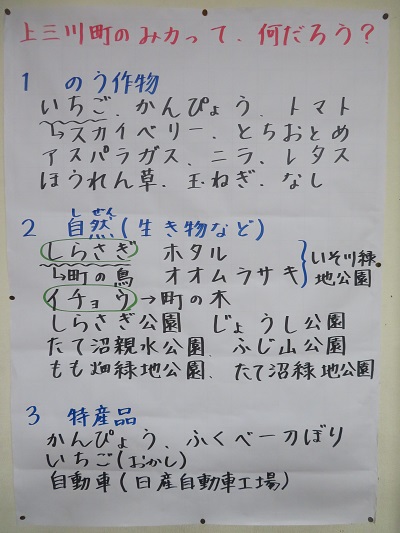 上三川町のみ力って、何だろう？
1 のう作物
いちご、かんぴょう、トマト
↳スカイベリー、とちおとめ
アスパラガス、ニラ、レタス
ほうれん草、玉ねぎ、なし
しぜん
2 自然(生き物など)
しらさぎ ホタル
↳町の鳥 オオムラサキ
いそ川緑地公園
イチョウ→町の木
しらさぎ公園 じょうし公園
たて沼親水公園、ふじ山公園
もも畑緑地公園、たて沼緑地公園
3 特産品
かんぴょう、ふくべ一刀ぼり
いちご(おかし)
自動車(日産自動車工場)